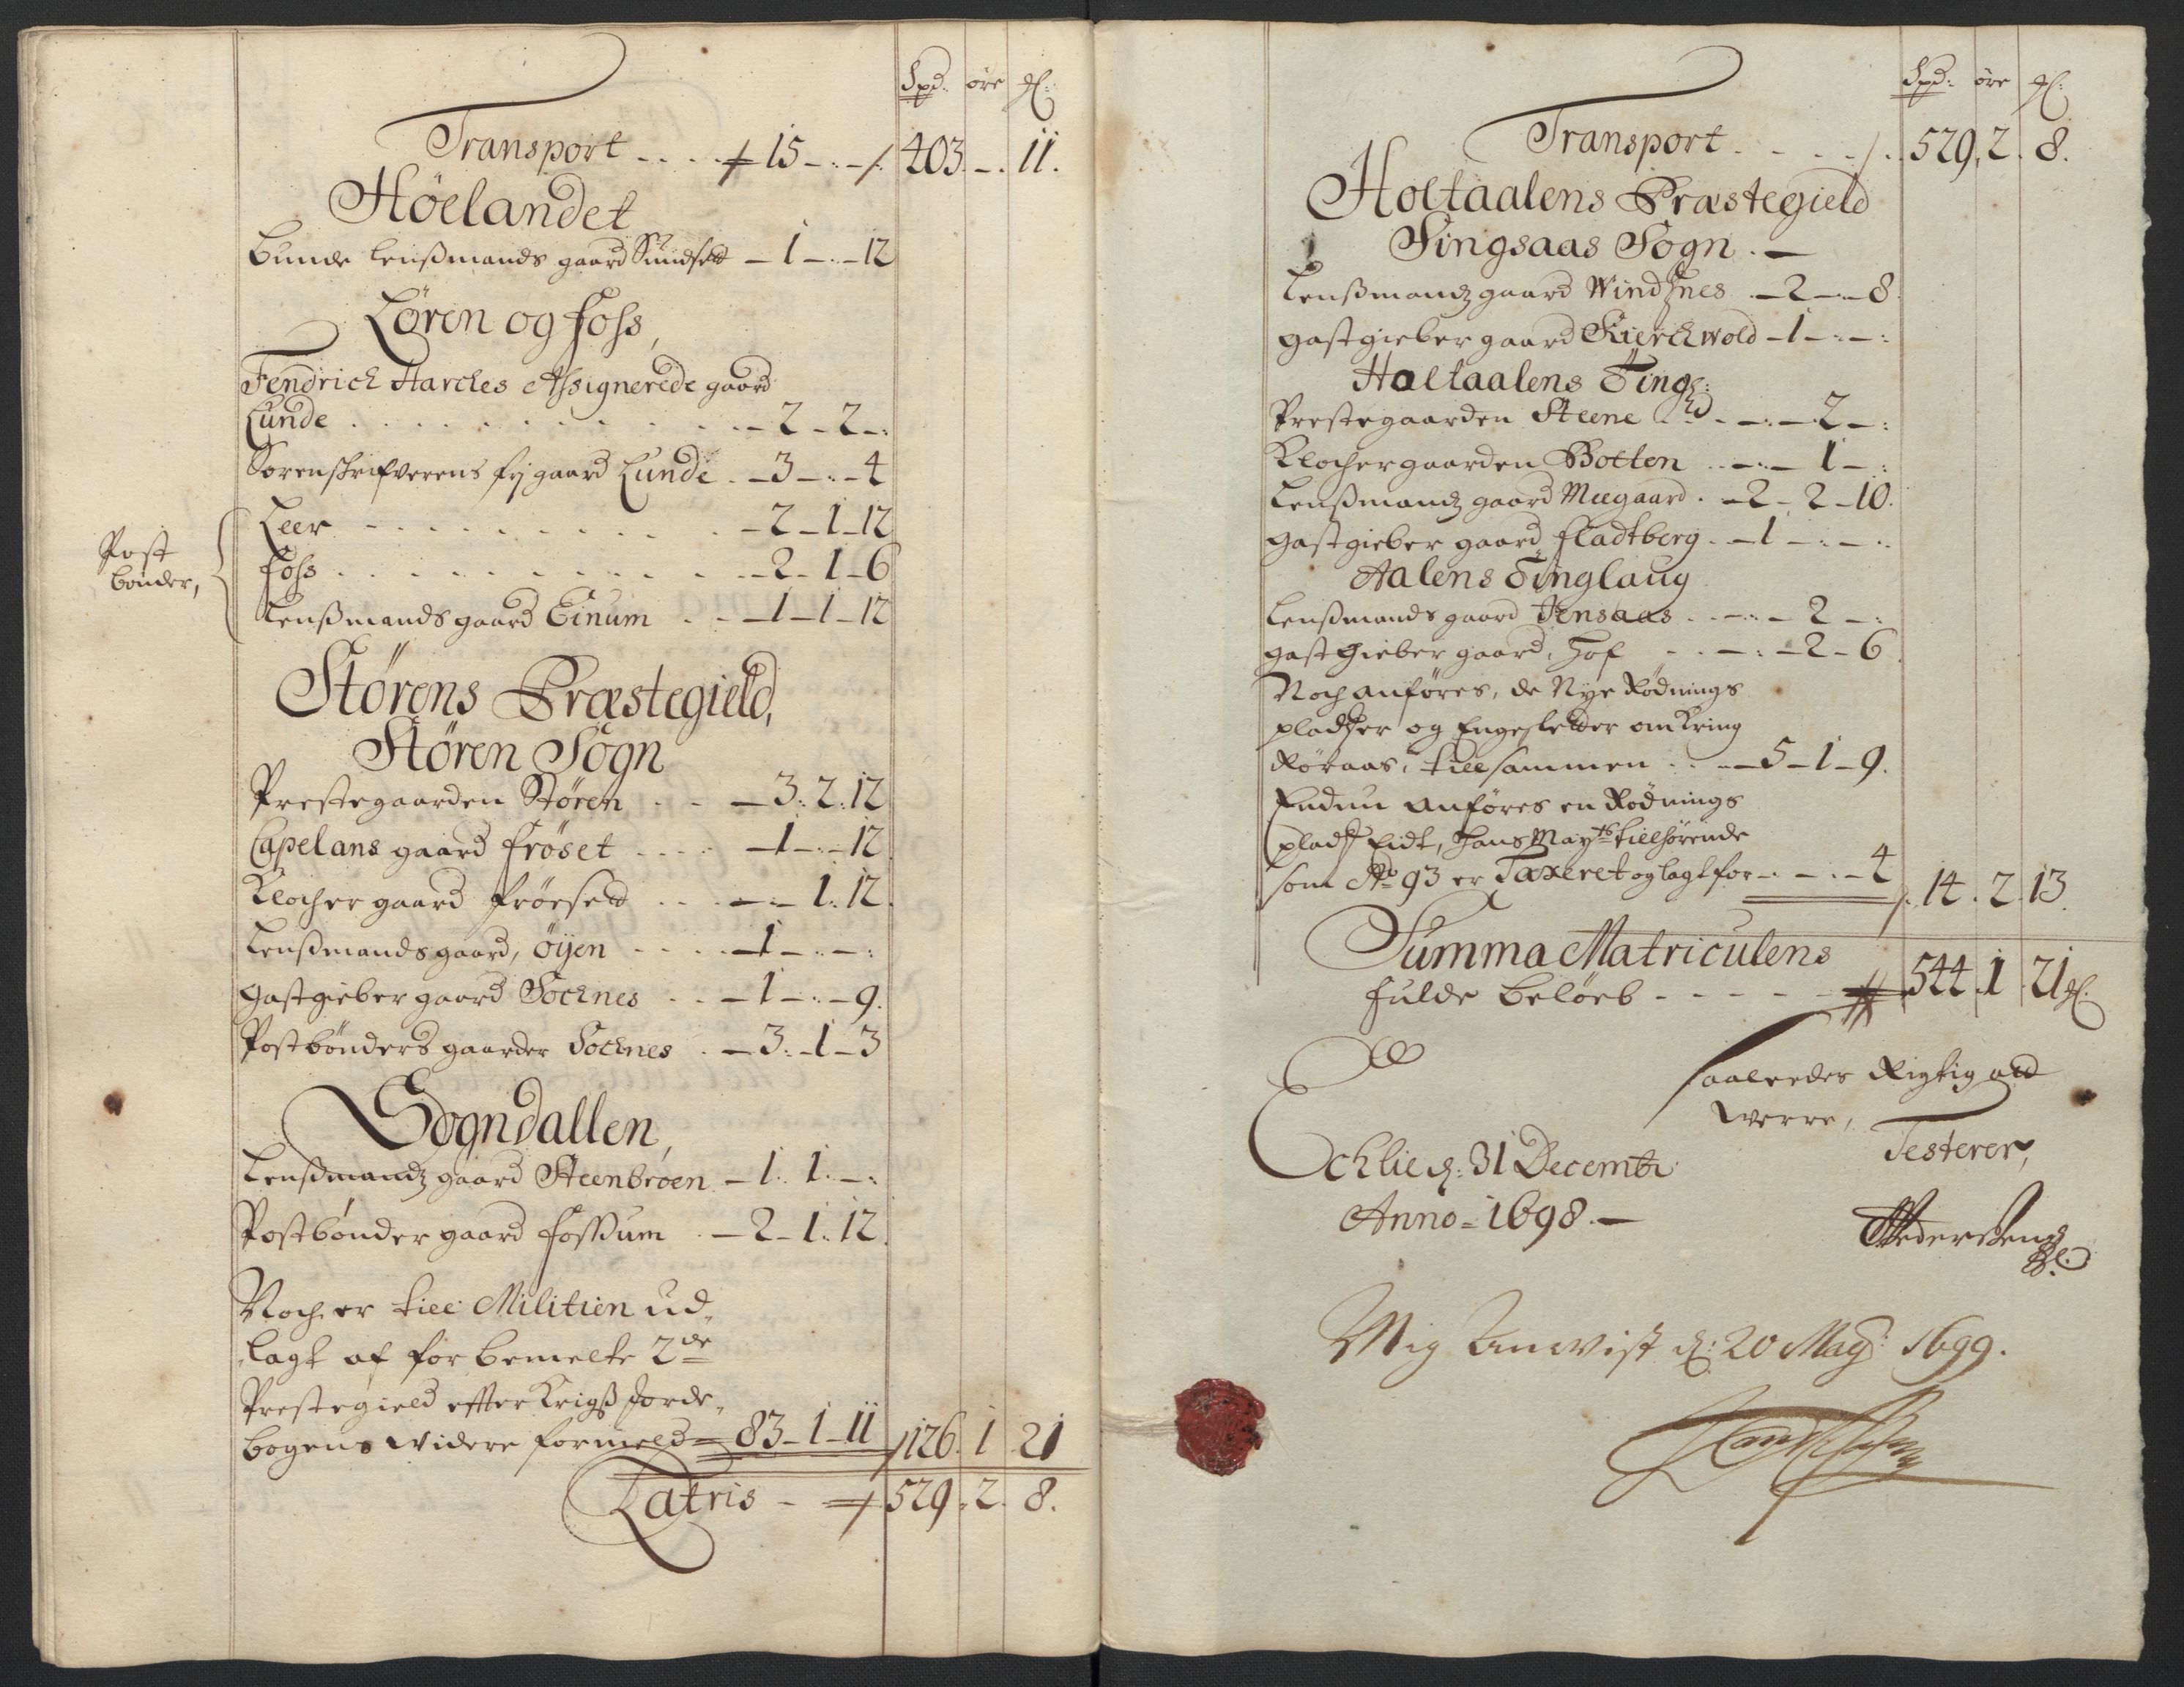 Spd: øre
Transport - - - - 15 - : - 403. - . 11.
Høelandet
Bunde Lensmands gaard Sundset - 1 - : - 12
Løren og Foss,
Fendrich Starches Assignerede gaard
Lunde . . . . . . . . - 2 - 2 - :
Sorenskrifverens sæ gaard Lunde . - 3 - : - 4
Leer - - - - - - - - - 2 - 1 - 12
Post
bønder,
Foss . . . . . . . . - 2 - 1 - 6
Lensmands gaard Einum . . - 1 - 1 - 12
Størens Præstegield,
Støren Sogn
Prestegaarden Støren . . - 3 : 2 : 12
Capelans gaard Frøset - - - - 1 - : - 12
Klocher gaard Frøeset . . . - : - 1 : 12
Lensmands gaard, Øyen - - - - 1 - : - :
Gastgieber gaard Socknes . . - 1 - : - 9.
Postbønders gaarder Socknes . - 3 : - 1 - 3
Sogndallen,
Lensmandz gaard Steenbroen - 1 : 1 : - :
Postbønder gaard Fossum . - 2 - 1 : 12
Noch er till Militien ud-
lagt af for bemelte 2de
Prestegield effter Krigs Jorde-
bogens widere formeld - 83 - 1 - 11 126. 1 21
Latris - 529 . 2 . 8.
Spd: øre
Transport . - - - . 529. 2. 8.
Holtaalens Præstegield
Singsaas Sogn . -
Lensmandz gaard Windsnes . - 2 - : - 8
Gastgieber gaard Kierchwold - 1 - : - :
Holtaalens Tingl:
Prestegaarden Steene - - : - 2 - :
Klochergaarden Botten . . - : - 1 - :
Lensmandz gaard Meegaard . - 2 - 2 - 10.
Gastgieber gaard Fladtberg . - 1 - : - :
Aalens Tinglaug
Lensmands gaard Jensaas . . - : - 2 - :
Gastgieber gaard, Hof . . - : - 2 - 6
Noch anføres, de Nye Rødnings
pladser og Engesletter omkring
Røraas, tillsammen . . - 5 - 1 - 9.
Endnu anføres en Rødnings
plads Eidt, Hans Mayts tillhørende
som Ao 93 er Taxeret og lagt for - . - . - 4 14 . 2 . 13
Summa Matriculens
fulde beløeb - - - - - 544. 1 . 21
Saaledes Rigtig att
werre,
Testerer,
Echlie d: 31 Decembr:
Anno = 1698. -
Mig Anvist d: 20 May: 1699.